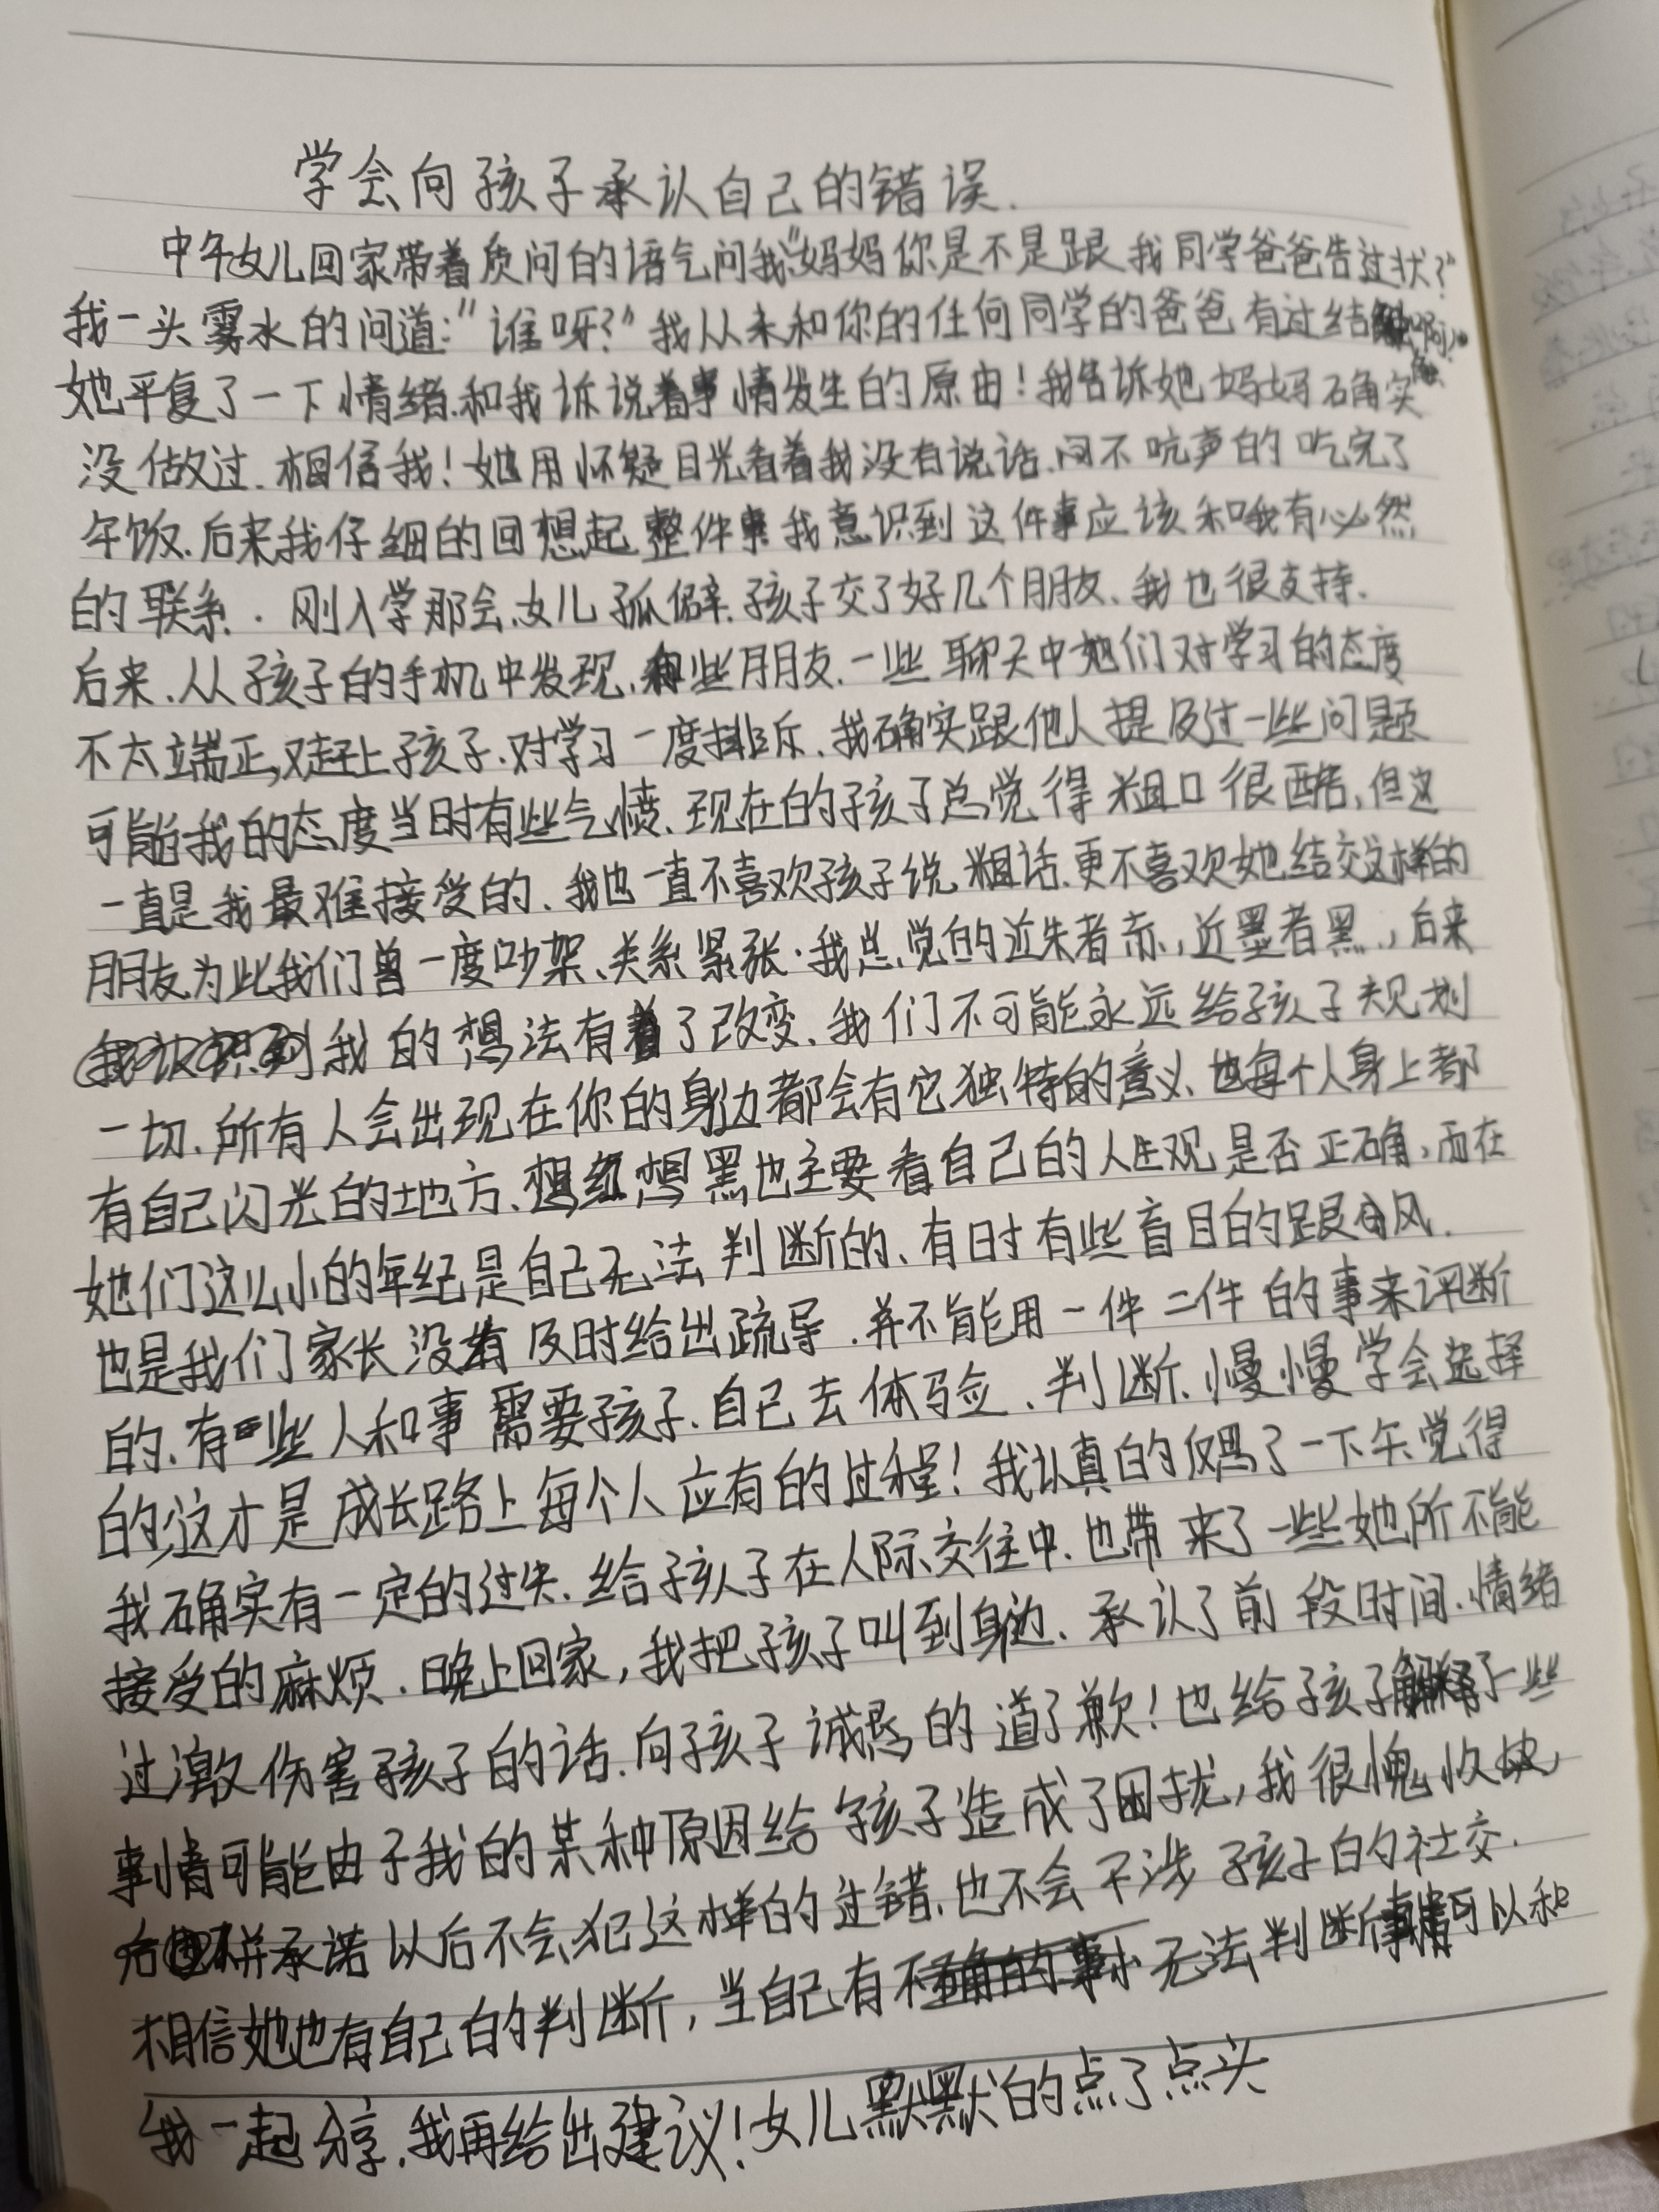 学会向孩子承认自己的错误.
中午女儿回家带着质问的语气问我"妈妈你是不是跟我同学爸爸告过状?"
我一头雾水的问道:"谁呀?"我从未和你的任何同学的爸爸有过结触啊,
她平复了一下情绪.和我诉说着事情发生的原由!我告诉她妈妈确实
没做过.相信我!她用怀疑目光看着我没有说话.闷不吭声的吃完了
午饭.后来我仔细的回想起整件事我意识到这件事应该和我有必然
的联系.刚入学那会.女儿孤僻.孩子交了好几个朋友、我也很支持.
后来.从孩子的手机中发现.有些朋友.一些聊天中她们对学习的态度
不太端正,对赶上孩子.对学习一度排斥.我确实跟他人提及过一些问题
可能我的态度当时有些气愤.现在的孩子总觉得粗口很酷,但这
一直是我最难接受的.我也一直不喜欢孩子说粗话.更不喜欢她结交这样的
朋友为此我们曾一度吵架、关系紧张.我总觉的近朱者赤,近墨者黑,后来
我的想法有了改变.我们不可能永远给孩子规划
一切.所有人会出现在你的身边都会有它独特的意义.也每个人身上都
有自己闪光的地方.想红想黑也主要看自己的人生观是否正确,而在
她们这么小的年纪是自己无法判断的.有时有些盲目的跟风.
也是我们家长没有及时给出疏导.并不能用一件二件的事来评断
的.有些人和事需要孩子.自己去体验.判断.慢慢学会选择
的,这才是成长路上每个人应有的过程!我认真的想了一下午觉得
我确实有一定的过失.给孩子在人际交往中.也带来了一些她所不能
接受的麻烦.晚上回家,我把孩子叫到身边.承认了前段时间.情绪
过激伤害孩子的话.向孩子诚恳的道了歉!也给孩子解释了一些
事情可能由于我的某种原因给孩子造成了困扰,我很愧疚
并承诺以后不会犯这样的过错.也不会干涉孩子的社交.
相信她也有自己的判断,当自己有无法判断事情可以和
我一起分享.我再给出建议!女儿默默的点了点头